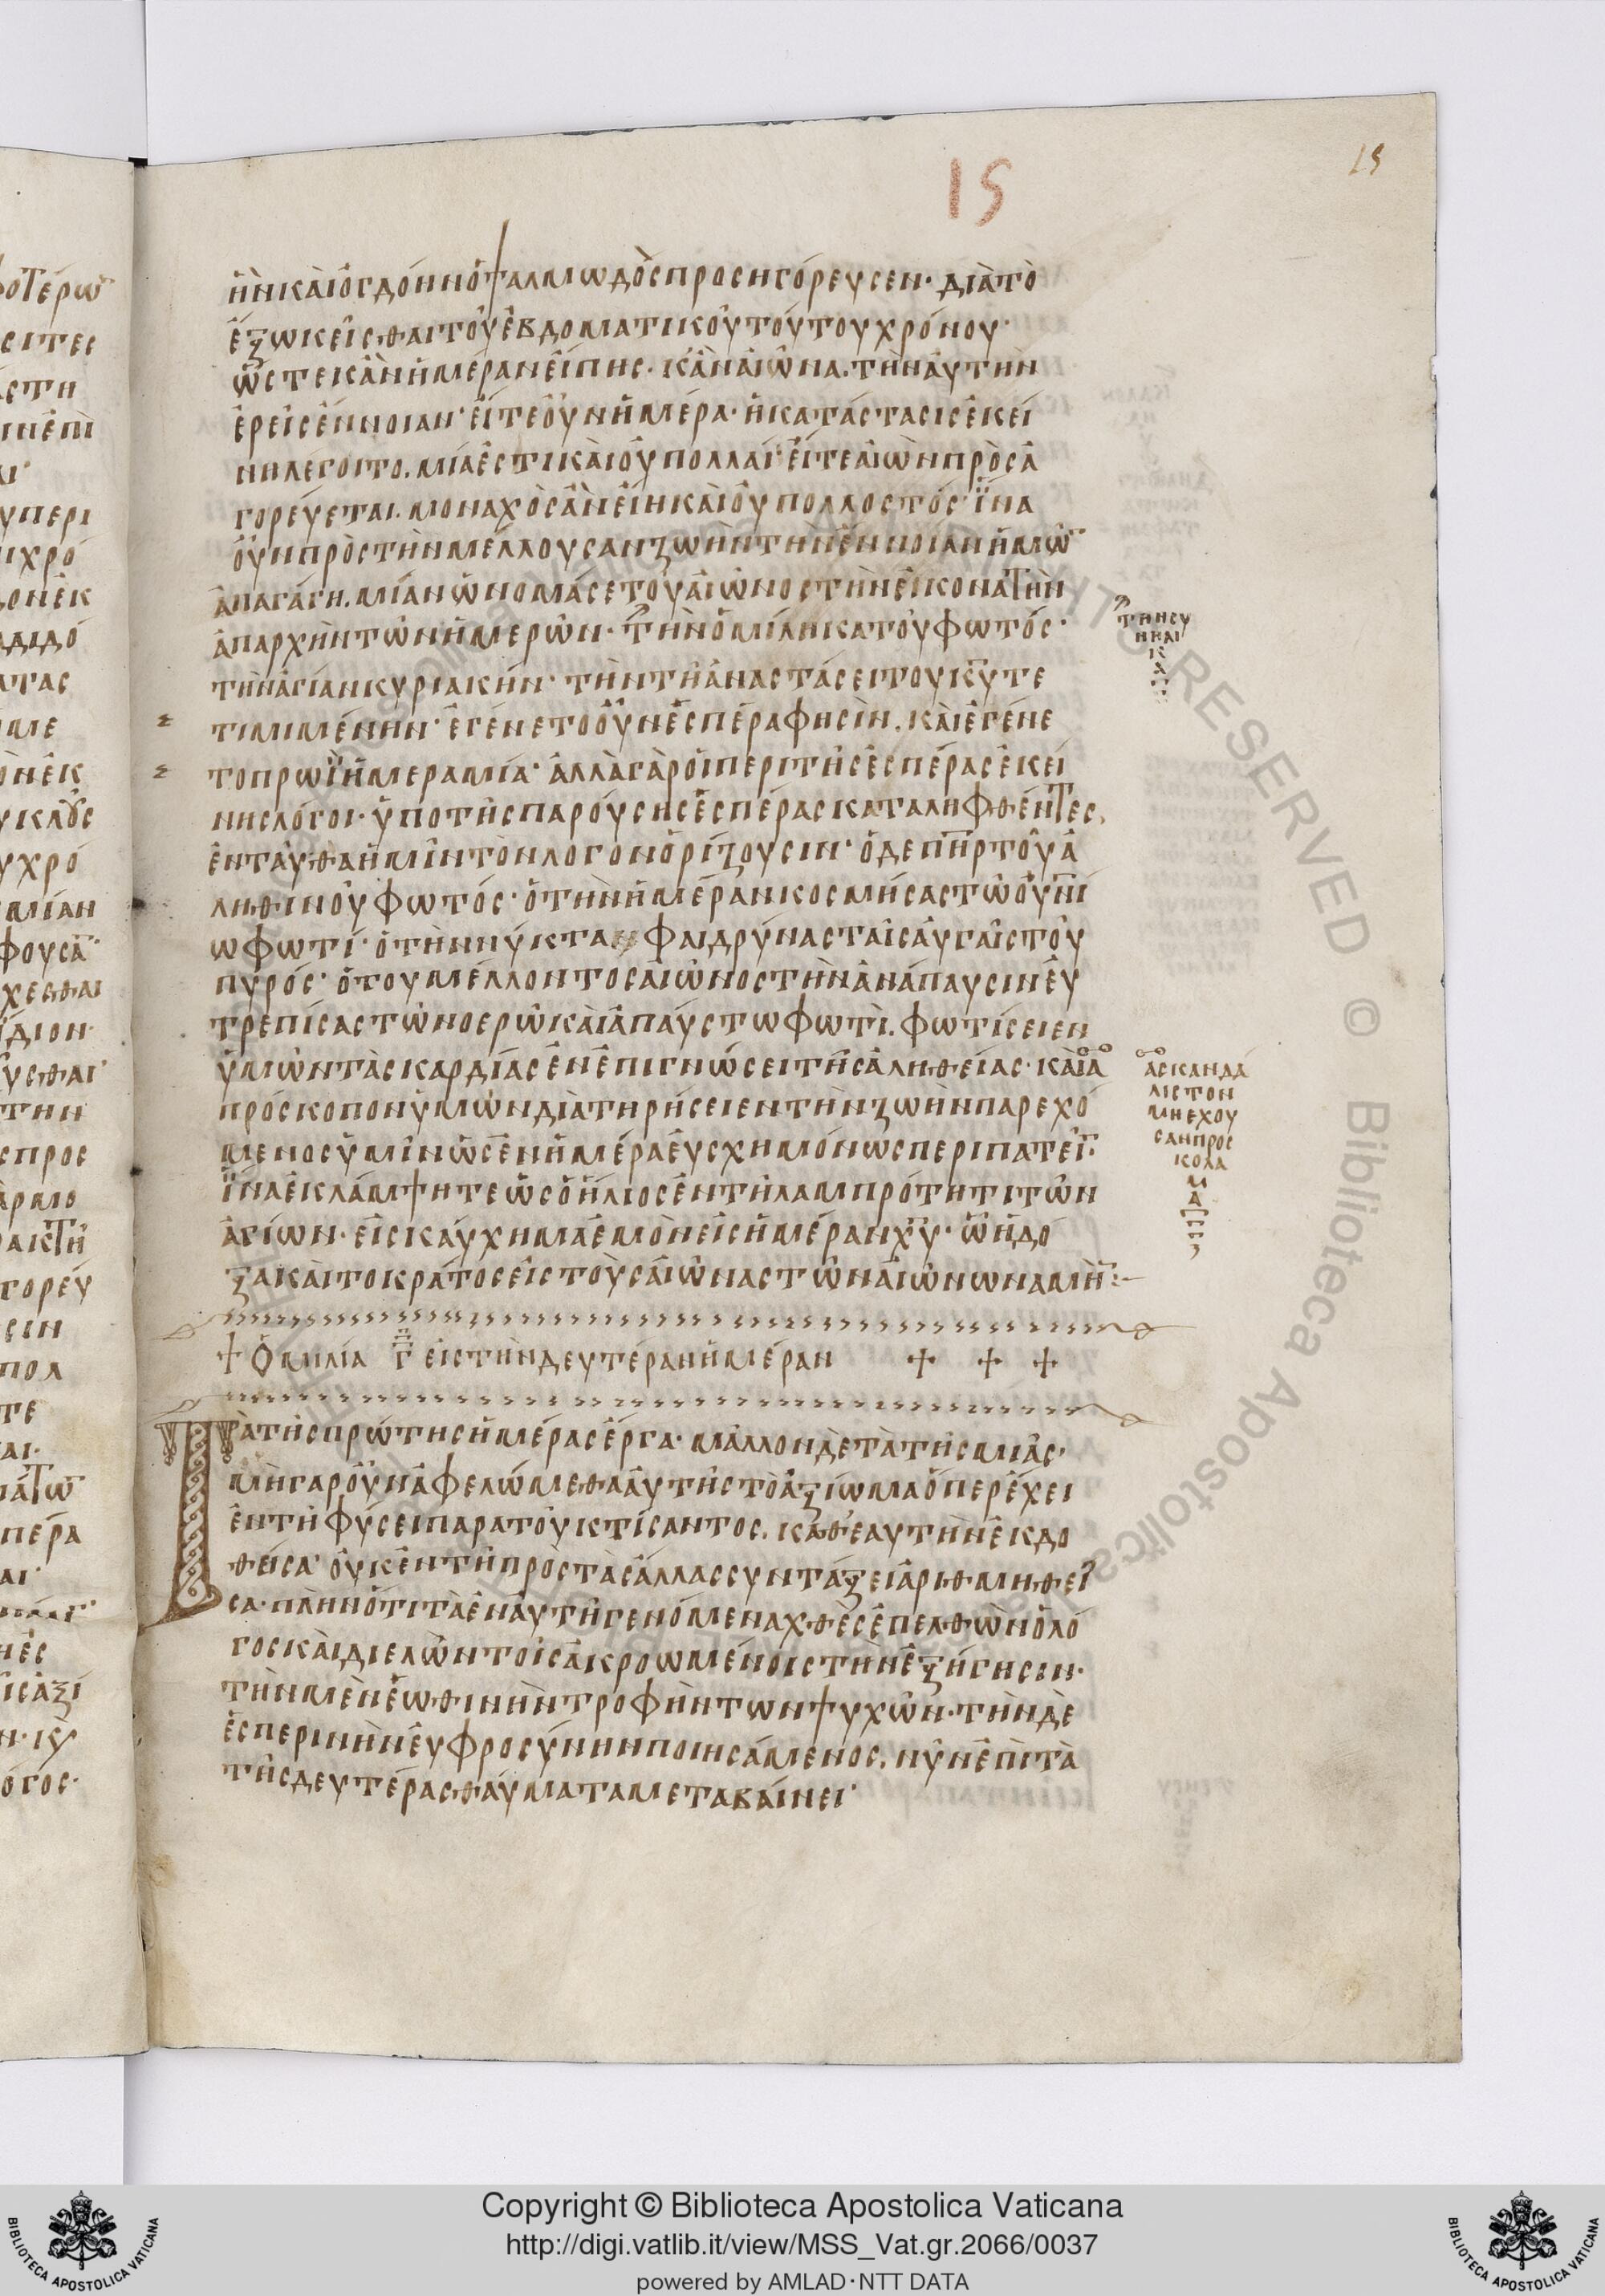 15
15
ἣν καὶ ὀγδόην ὁ ψαλμωδὸς προσηγόρευσεν· διὰ τὸ
ἔξω κεῖσθαι τοῦ ἑβδοματικοῦ τούτου χρόνου·
ὥστε κἂν ἡμέραν εἴπης· κἂν αἰῶνα. τὴν αὐτὴν
ἐρεῖς ἔννοιαν· εἴτε οὖν ἡμέρα· ἡ κατάστασις ἐκεί
νη λέγοιτο. μία ἐστι καὶ οὐ πολλαί· εἴτε αἰὼν προσα
γορεύεται. μοναχὸς ἂν εἴη καὶ οὐ πολλοστός· ἵνα
οὖν πρὸς τὴν μέλλουσαν ζωὴν τὴν ἔννοιαν ἡμῶ̅
ἀπαγάγη. μίαν ὠνόμασε τοῦ αἰῶνος τὴν εἰκόνα τὴν
ἀπαρχὴν τῶν ἡμερῶν· τὴν ὁμίληκα τοῦ φωτός·
τὴν ἁγίαν κυριακήν· τὴν τῇ ἀναστάσει τοῦ κ̅υ̅ τε
τιμιμένην· ἐγένετο οὖν ἑσπέρα φησὶν. καὶ ἐγένε
το πρωῒ ἡμερα μία· ἀλλὰ γὰρ οἱ περι τῆς ἑσπέρας ἐκεί
νης λόγοι· ὑπο τῆς παρούσης ἑσπέρας καταληφθέντες,
ἐνταῦθα ἡμῖν τὸν λογον ὁρίζουσιν· ὁ δε π̅η̅ρ τοῦ ἀ
ληθινοῦ φωτός· ὁ τὴν ἡμέραν κοσμήσας τῶ οὐ̅ν̅ί
ω φωτί· ὁ τὴν νύκτα φαιδρύνας ταῖς αὐγαῖς τοῦ
πυρός· ὁ του μέλλοντος αἰῶνος τὴν ἀνάπαυσιν εὐ
τρεπίσας τῶ νοερῶ καὶ ἀπαύστω φωτὶ. φωτίσειεν
ὑμῶν τὰς καρδίας ἐν ἐπιγνώσει τῆς ἀληθείας· καὶ ἀ
πρόσκοπον ὑμῶν διατηρήσειεν τὴν ζωὴν παρεχό
μενος ὑμῖν ὡς ἐν ἡμέρα εὐσχημόνως περιπατεῖ̅·
ἵνα ἐκλάμψητε ὡς ὁ ἥλιος ἐν τῆ λαμπρότητι τῶν
ἁγίων· εἰς καύχημα ἐμὸν εἰς ἡμέραν χ̅υ̅· ὧ ἡ δό
ξα καὶ το κράτος εἰς τοὺς αἰῶνας τῶν αἰώνων ἀμὴ̅:—
τὴν συ
νηλι
κ
ἀσκανδά
λιστον
μη εχου
σαν προς
κολα
μ
α
+ Ὁμιλία γ̅ εἰς τὴν δευτέραν ἡμέραν + + +
Τὰ τῆς πρώτης ἡμέρας ἔργα· μᾶλλον δὲ τὰ τῆς μιᾶς·
μὴ γαρ οὖν ἀφελώμεθα αὐτῆς τὸ ἀξίωμα ὅπερ ἔχει
ἐν τῆ φύσει παρα τοῦ κτίσαντος. καθ' ἑαυτὴν ἐκδο
θεῖσα· οὐκ ἐν τῆ πρὸς τὰς ἄλλας συντάξει ἀριθμηθεῖ
σα· πλὴν ὅτι τὰ ἐν αὐτῆ γενόμενα χθὲς ἐπελθὼν ὁ λό
γος καὶ διελὼν τοῖς ἀκροωμένοις τὴν ἐξήγησιν·
τὴν μὲν ἑωθινὴν τροφὴν των ψυχῶν· τὴν δὲ
ἑσπερινὴν εὐφροσύνην ποιησάμενος. νῦν ἐπὶ τὰ
τῆς δευτέρας θαύματα μεταβαίνει·
Copyright © Biblioteca Apostolica Vaticana
http://digi.vatlib.it/view/MSS_Vat.gr.2066/0037
powered by AMLAD·NTT DATA